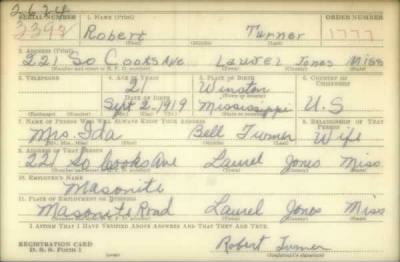 2624
SERIAL NUMBER 1. NAME (Print) ORDER NUMBER
3392 Robert Turner 1777
(First) (Middle) (Last)
2. ADDRESS (Print)
221 So Cooks Ave Laurel Jones Miss
(Town) (County) (State)
3. TELEPHONE 4. AGE IN YEARS 5. PLACE OF BIRTH 6. COUNTRY OF CITIZENSHIP
21 Winston
DATE OF BIRTH (Town or county)
Sept 2-1919 Mississippi U.S
(Exchange) (Number) (Mo.) (Day) (Yr.) (State or country)
7. NAME OF PERSON WHO WILL ALWAYS KNOW YOUR ADDRESS 8. RELATIONSHIP OF THAT PERSON
Mrs. Ida Bell Turner Wife
(Mr., Mrs., Miss) (First) (Middle) (Last)
9. ADDRESS OF THAT PERSON
221 So Cooks Ave Laurel Jones Miss.
(Town) (County) (State)
10. EMPLOYER'S NAME
Masonite
11. PLACE OF EMPLOYMENT OR BUSINESS
Masonite Road Laurel Jones Miss
(Town) (County) (State)
I AFFIRM THAT I HAVE VERIFIED ABOVE ANSWERS AND THAT THEY ARE TRUE.
REGISTRATION CARD
D. S. S. Form 1
Robert Turner
(Registrant's signature)